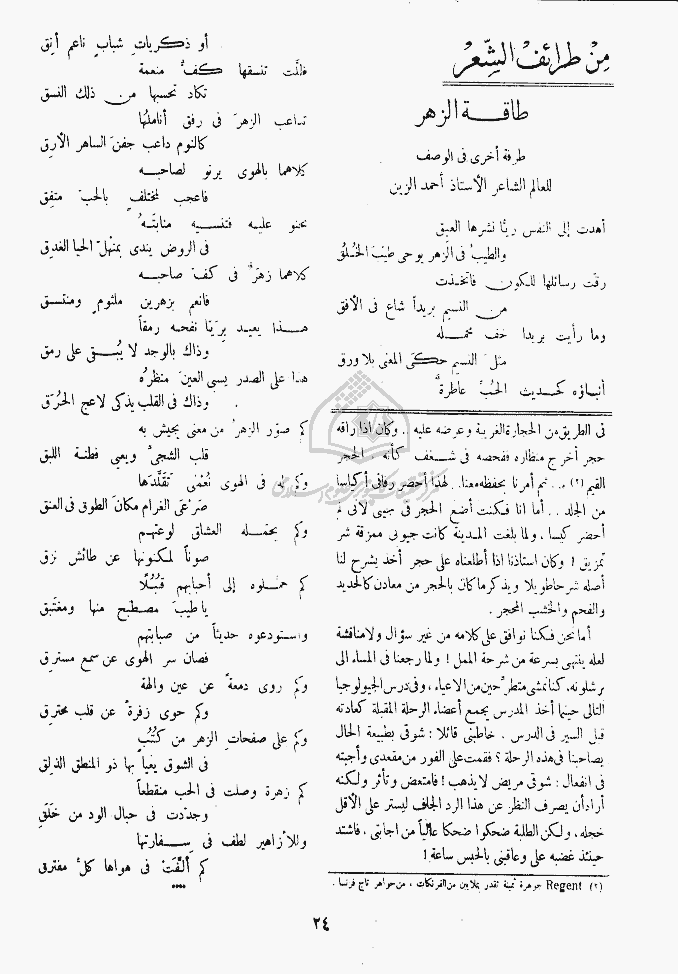 من طرائف الشِّعر
طاقة الزهر
طرفة أخرى فى الوصف
للعالم الشاعر الأستاذ أحمد الزين
أهدت إلى النفس ريَّا نشرها العبق
والطيبُ فى الزهر يوحى طيِّبَ الخُلُقِ
رقَّت رسائلها للكون فاتخذت
من النسيم بريداً شاع فى الأفق
وما رأيت بريدا خف محمله
مثل النسيم حكى المعنى بلا ورق
أنباؤه كحديث الحُبِّ عاطرةٌ
أو ذكريات شبابٍ ناعم أنِق
ظلَّت تنسقها كفٌّ منعمة
تكاد تحسبها من ذلك النسق
تداعب الزهرَ فى رفق أناملُها
كالنوم داعب جفنَ الساهر الأرِق
كلاهما بالهوى يرنو لصاحبه
فاعجب لمختلفٍ بالحبّ متفِق
تحنو عليه فتنسيه منابتَهُ
فى الروض يندى بمنهلّ الحيا الغدِق
كلاهما زهرٌ فى كفّ صاحبه
فانعم بزهرين ملثومٍ ومنتشق
هذا يعيد بِرَيّا نفحه رمقاً
وذاك بالوجد لا يُبقى على رمق
هذا على الصدر يسبى العينَ منظرُه
وذاك فى القلب يذكى لاعج الحُرَق
كم صوّر الزهرُ من معنى يجيش به
قلب الشجىّ ويعيى فطنة اللبق
وكم له فى الهوى نُعْمَى تقلَّدَها
صَرْعَى الغرام مكانَ الطوق فى العنق
وكم يحمّله العشاق لوعتهم
صوناً لمكنونها عن طائش نزق
كم حمَّلوه إلى أحبابهم قُبَلًا
يا طيبَ مصطبح منها ومغتبق
واستودعوه حديثاً من صبابتهم
فصان سر الهوى عن سمع مسترق
وكم روى دمعةً عن عين والهة
وكم حوى زفرةً عن قلب محترق
وكم على صفحات الزهر من كُتُبٍ
فى الشوق يعيا بها ذو المنطق الذلِق
كم زهرة وصلت فى الحب منقطعاً
وجدّدت فى حبال الود من خَلَقِ
وللأزاهير لطف فى سفارتها
كم ألَّفَتْ فى هواها كلَّ مفترق
فى الطريق من الحجارة الغريبة وعرضه عليه .. وكان اذا راقه
حجر أخرج منظاره ففحصه فى شغف كأنه الحجر
القيم (٢) ... ثم أمرنا بحفظه معنا. لهذا أحضر رفاقى أكياسا
من الجلد .. أما انا فكنت أضع الحجر فى جيبى لأنى لم
أحضر كيسا، ولما بلغت المدينة كانت جيوبى ممزقة شر
تمزيق ! وكان استاذنا اذا أطلعناه على حجر أخذ يشرح لنا
أصله شرحا طويلا ويذكر ما كان بالحجر من معادن كالحديد
والفحم والخشب المحجر .
أما نحن فكنا نوافق على كلامه من غير سؤال ولا مناقشة
لعله ينتهى بسرعة من شرحه الممل ! ولما رجعنا فى المساء الى
برشلونه، كنا نمشى متطرحين من الاعياء، وفى درس الجيولوجيا
التالى حينما أخذ المدرس يجمع أعضاء الرحلة المقبلة كعادته
قبل السير فى الدرس . خاطبنى قائلا : شوقى بطبيعة الحال
يصاحبنا فى هذه الرحلة ؟ فقمت على الفور من مقعدى وأجبته
فى انفعال : شوقى مريض لا يذهب ! فامتعض وتأثر ولكنه
أراد أن يصرف النظر عن هذا الرد الجاف ليستر على الأقل
خجله، ولكن الطلبة ضحكوا ضحكا عالياً من اجابتى، فاشتد
حينئذ غضبه على وعاقبنى بالحبس ساعة !
(٢) Regent جوهرة ثمينة تقدر بملايين من الفرنكات، من جواهر تاج فرنسا .
٢٤